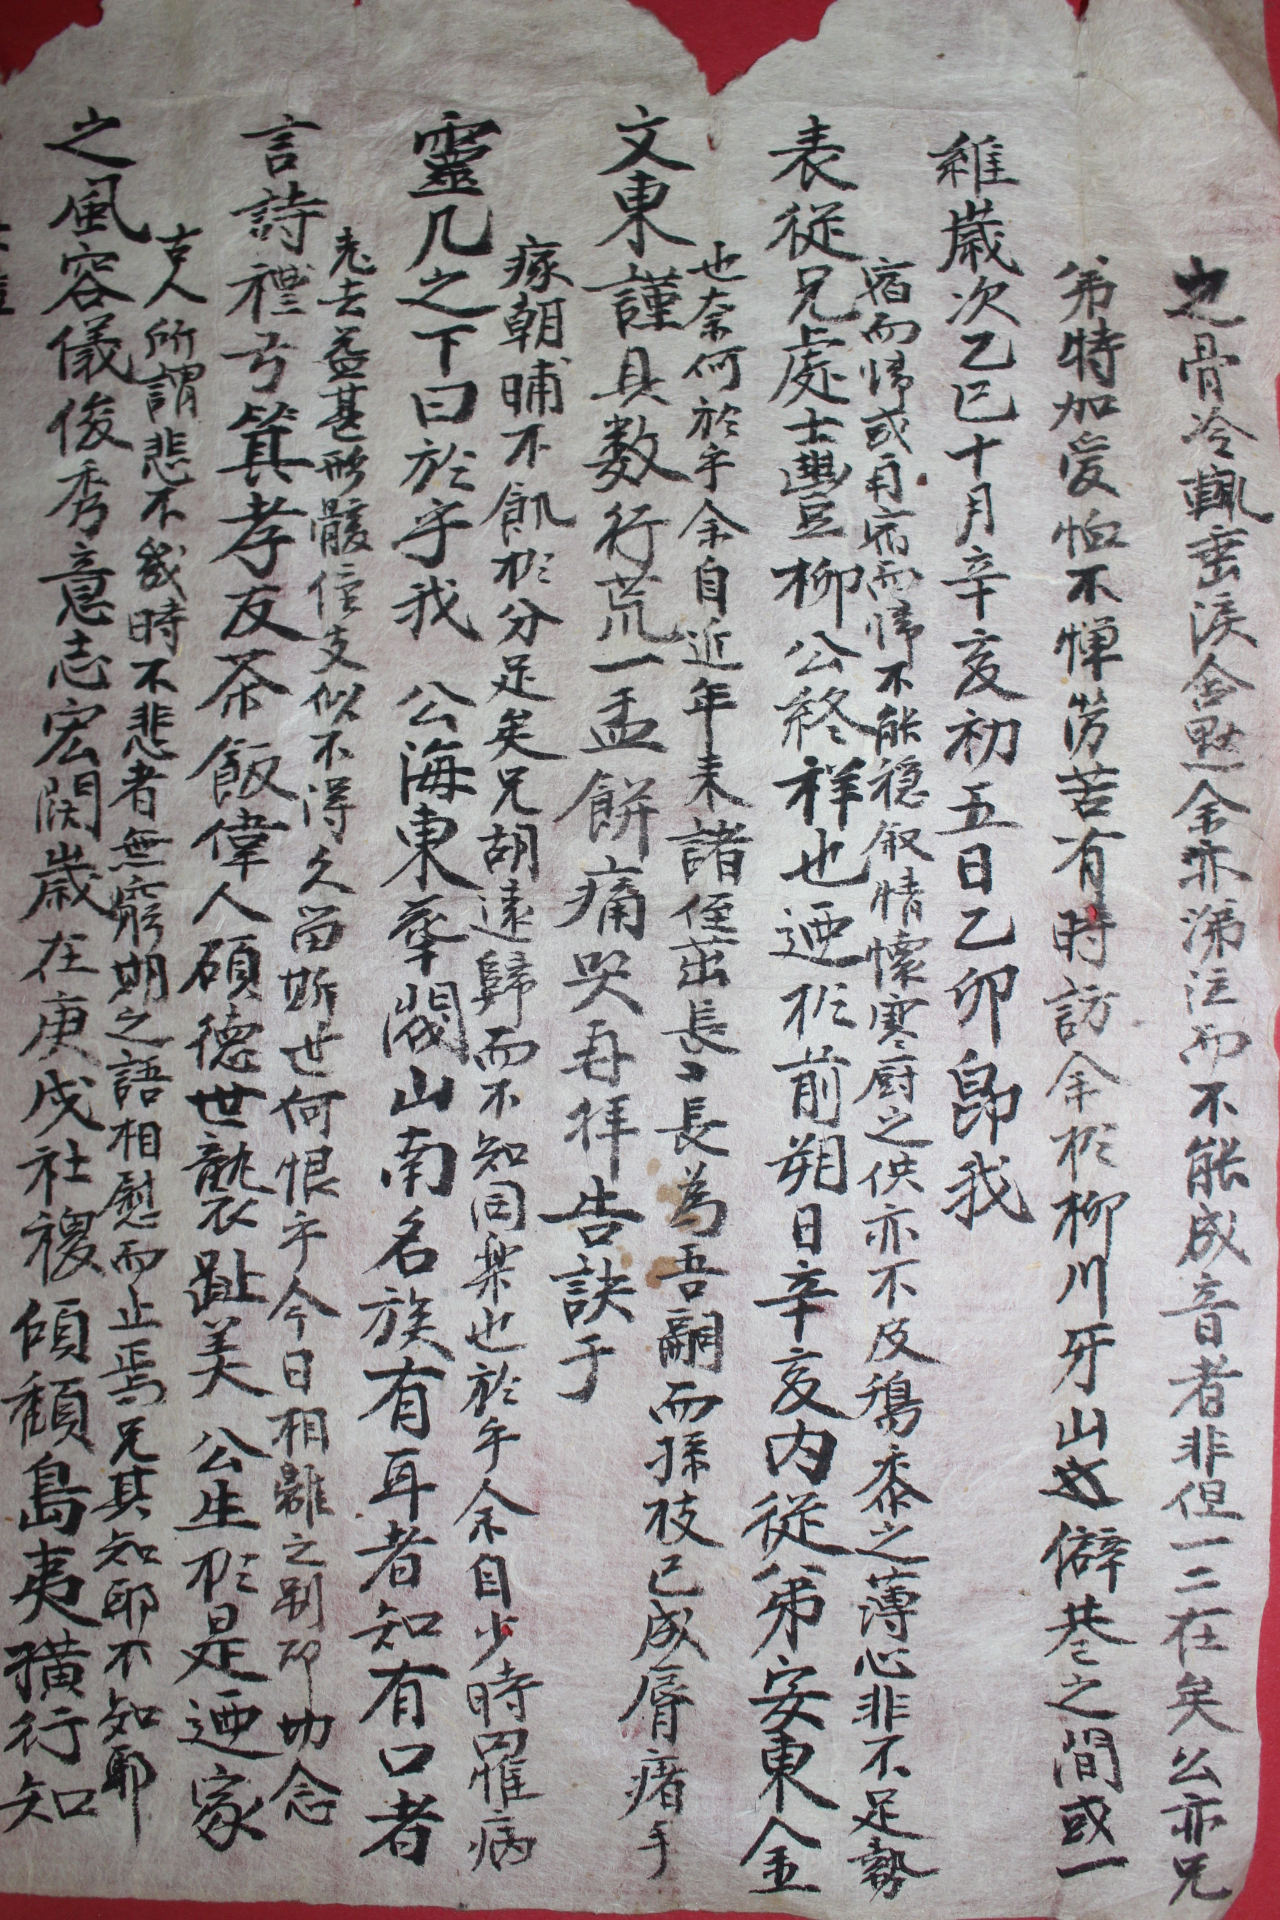 之骨冷輒垂淚含愁余亦涕泣而不能成音者非但一二在矣公亦兄
弟特加愛恤不憚勞苦有時訪余於柳川牙山之僻巷之間或一
維歲次乙巳十月辛亥初五日乙卯卽我
宿而歸或再宿而歸不能穩敍情懷寒廚之供亦不及鷄黍之薄心非不足勢
表從兄處士豐柳公終祥也迺於前朔日辛亥內從弟安東金
也奈何於乎余自近年來諸侄茁長長為吾嗣而孫枝已成脣瘏手
文東謹具数行荒一盂餅痛哭再拜告訣于
瘃朝晡不飢於分足矣兄胡遠歸而不知同樂也於乎余自少時罹病
靈几之下曰於乎我 公海東華閥山南名族有耳者知有口者
老去益甚形骸信支似不得久留斯世何恨乎今日相離之別耶切念
言詩禮弓箕孝友茶飯偉人碩德世襲趾美 公生於是迺家
古人所謂悲不幾時不悲者無窮期之語相慰而止焉兄其知耶不知耶
之風容儀俊秀意志宏闊歲在庚戌社稷傾覆島夷獷行知